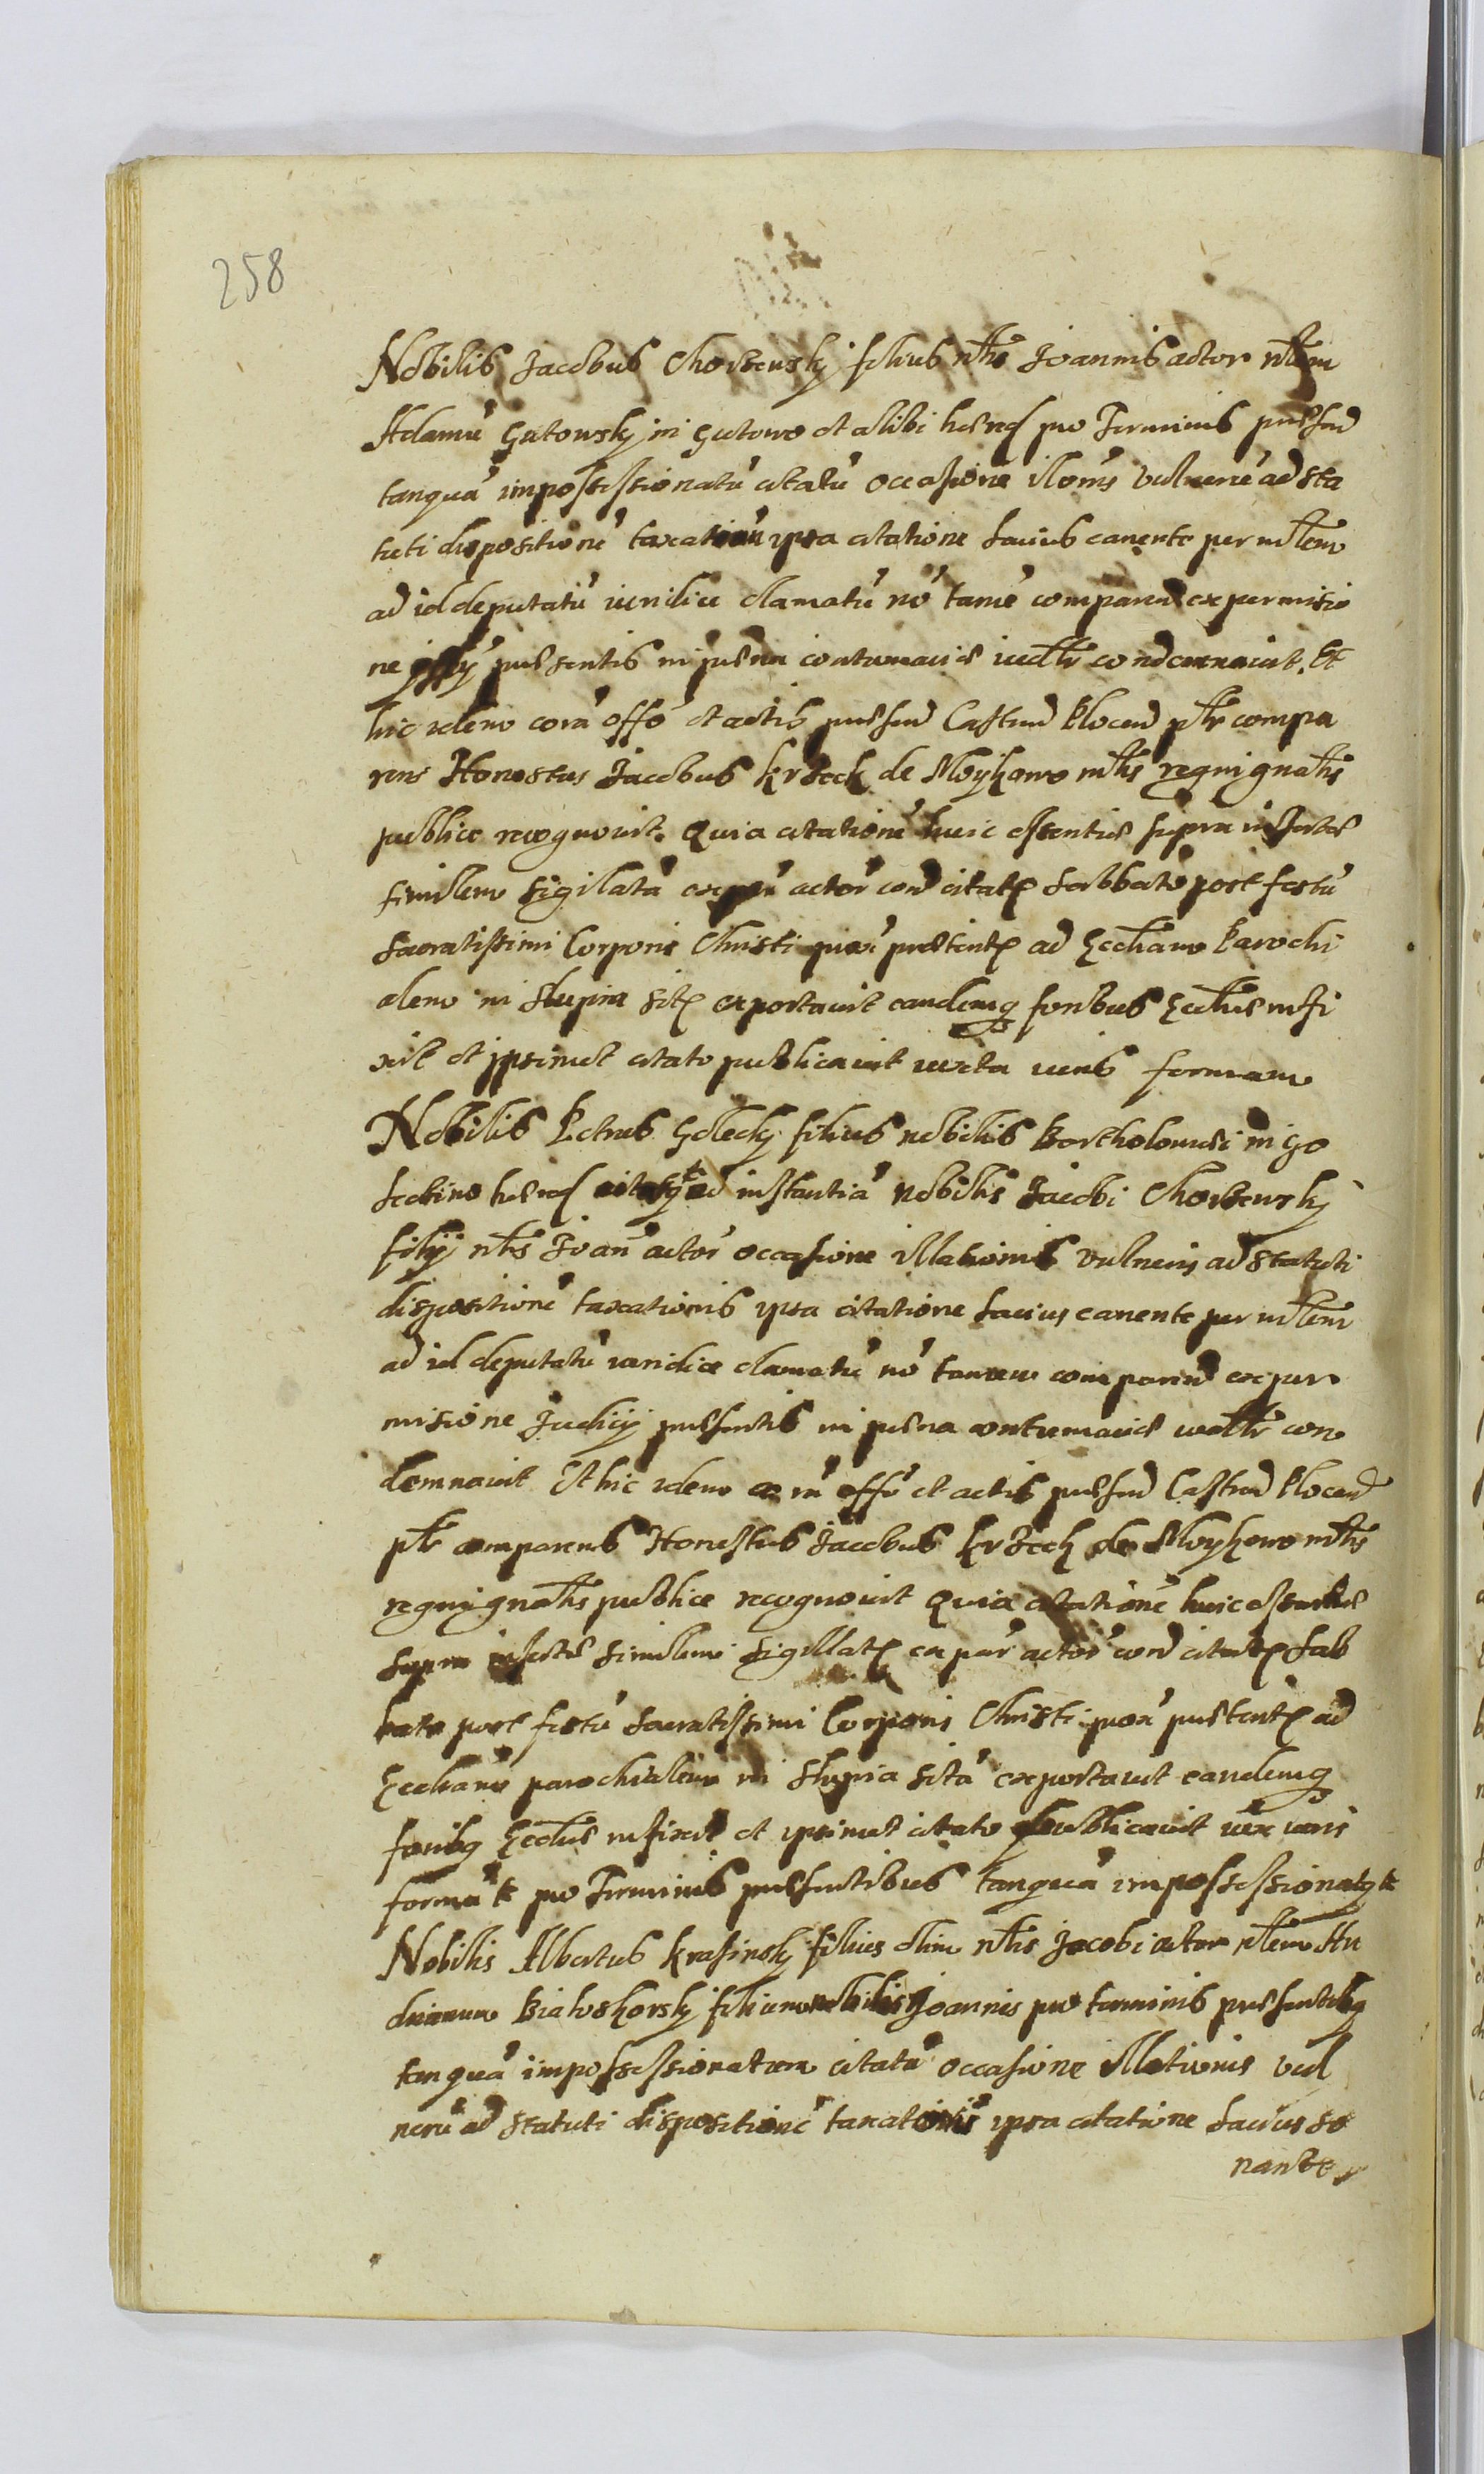 258
Nobilis Jacobus Chorzewsky filius nlis Joannis actor nlem
Adamũ Gutowsky in Gutowo et alibi hered pro Terminis pñsend
tanquã impossessionatũ citatũ occasione illonis vulnerũ ad sta
tuti dispositionẽ taxationũ ipsa citatione latius canente per mlem
ad id deputatũ iuridice clamatũ nõ tamẽ comparen ex permissio
ne pñsentis in pœna contumaciæ iudlr condemnavit. Et
hic idem corã offo et actis pñsend Castren Plocen plr compa
rens Honestus Jacobus Krzeck de Moykowo mlis regni gnalis
publice recognovit. Quia citationẽ huic essentiæ supra insertæ
similem sigilatã ex actor con citatũ sabbato post festũ
Sacratissimi Corporis Christi prox pretent ad Eccliam Parochi
alem in Slupia sit exportavit eandemq foribus Eccliæ infi
xit et ipsimet citato publicavit iuxta iuris formam
Nobilis Petrus Golecky filius nobilis Bartholomei in Go
leckino hered ad instantiã nobilis Jacobi Chorzewsky
filij nlis Joan actor occasione illationis vulneris ad statuti
dispositionẽ taxationis ipsa citatione latius canente per mlem
ad id deputatũ iuridice clamatũ nõ tamen comparen ex per
misione Judicij pñsentis in pœna contumaciæ iudlr con
demnavit Et hic idem corã offo et actis pñsend Castren Plocen
plr comparens Honestus Jacobus Krzeck de Moykowo mlis
regni gnalis publice recognovit Quia citationẽ huic essentiæ
supra insertæ similem sigillat ex par actor con citat Sab
bato post festũ Sacratissimi Corporis Christi prox pretent ad
Eccliam parochialem in Slupia sitã exportavit eandemq
foribq Eccliæ infixit et ipsimet citato publicavit iux iuris
formã et pro Terminis pñsentibus tanquã impossessionat
Nobilis Albertus Krasinsky filius olim nlis Jacobi actor nlem An
drianum Bialoskorsky filium nobilis Joannis pro terminis presentibq
tanquã impossessionatum citatũ occasione illationis vul
nerũ ad statuti dispositionẽ taxationis ipsa citatione latius so
nante